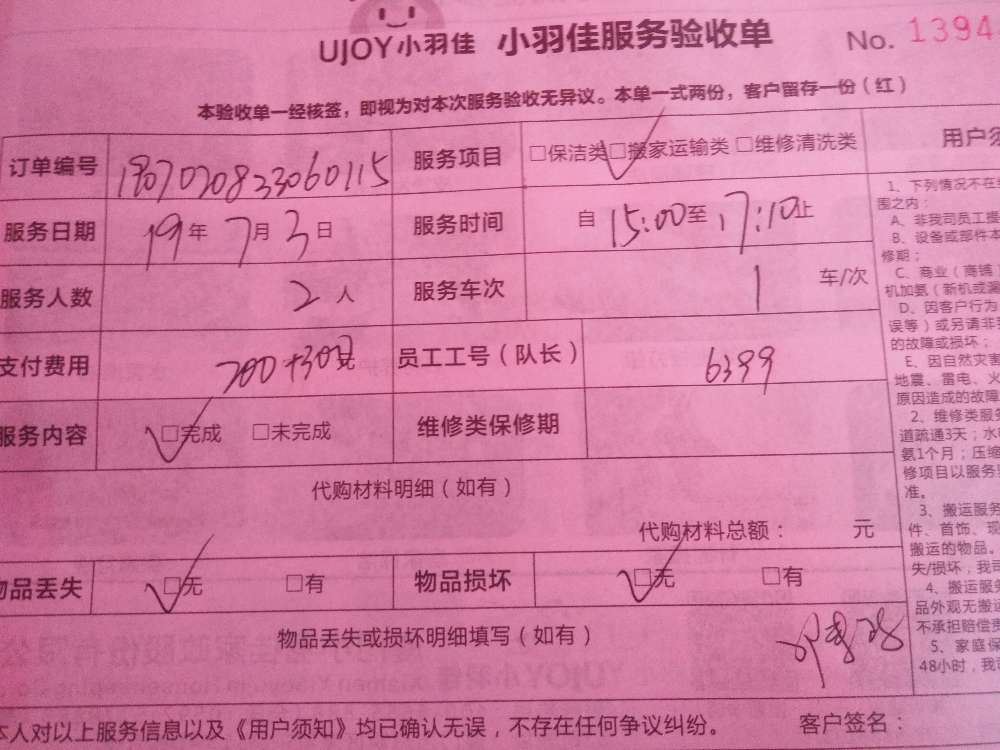 UJOY小羽佳 小羽佳服务验收单 No. 1394
本验收单一经核签，即视为对本次服务验收无异议。本单一式两份，客户留存一份（红）
订单编号 1907020833060115 服务项目 □保洁类 □搬家运输类 □维修清洗类 用户须
服务日期 19年7月3日 服务时间 自15:00至17:10止
服务人数 2人 服务车次 1 车/次
支付费用 200+30元 员工工号（队长） 6399
服务内容 □完成 □未完成 维修类保修期
代购材料明细（如有）
代购材料总额： 元
物品丢失 □无 □有 物品损坏 □无 □有
物品丢失或损坏明细填写（如有）
本人对以上服务信息以及《用户须知》均已确认无误，不存在任何争议纠纷。 客户签名：
1、下列情况不在
围之内：
A、非我司员工提
B、设备或部件本
修期；
C、商业（商铺）
机加氨（新机或漏
D、因客户行为
误等）或另请非
的故障或损坏；
E、因自然灾害
地震、雷电、火
原因造成的故障
2、维修类服务
道疏通3天；水
氨1个月；压缩
修项目以服务
准。
3、搬运服务
件、首饰、现
搬运的物品。
失/损坏，我司
4、搬运服务
品外观无搬运
不承担赔偿责
5、家庭保
48小时，我